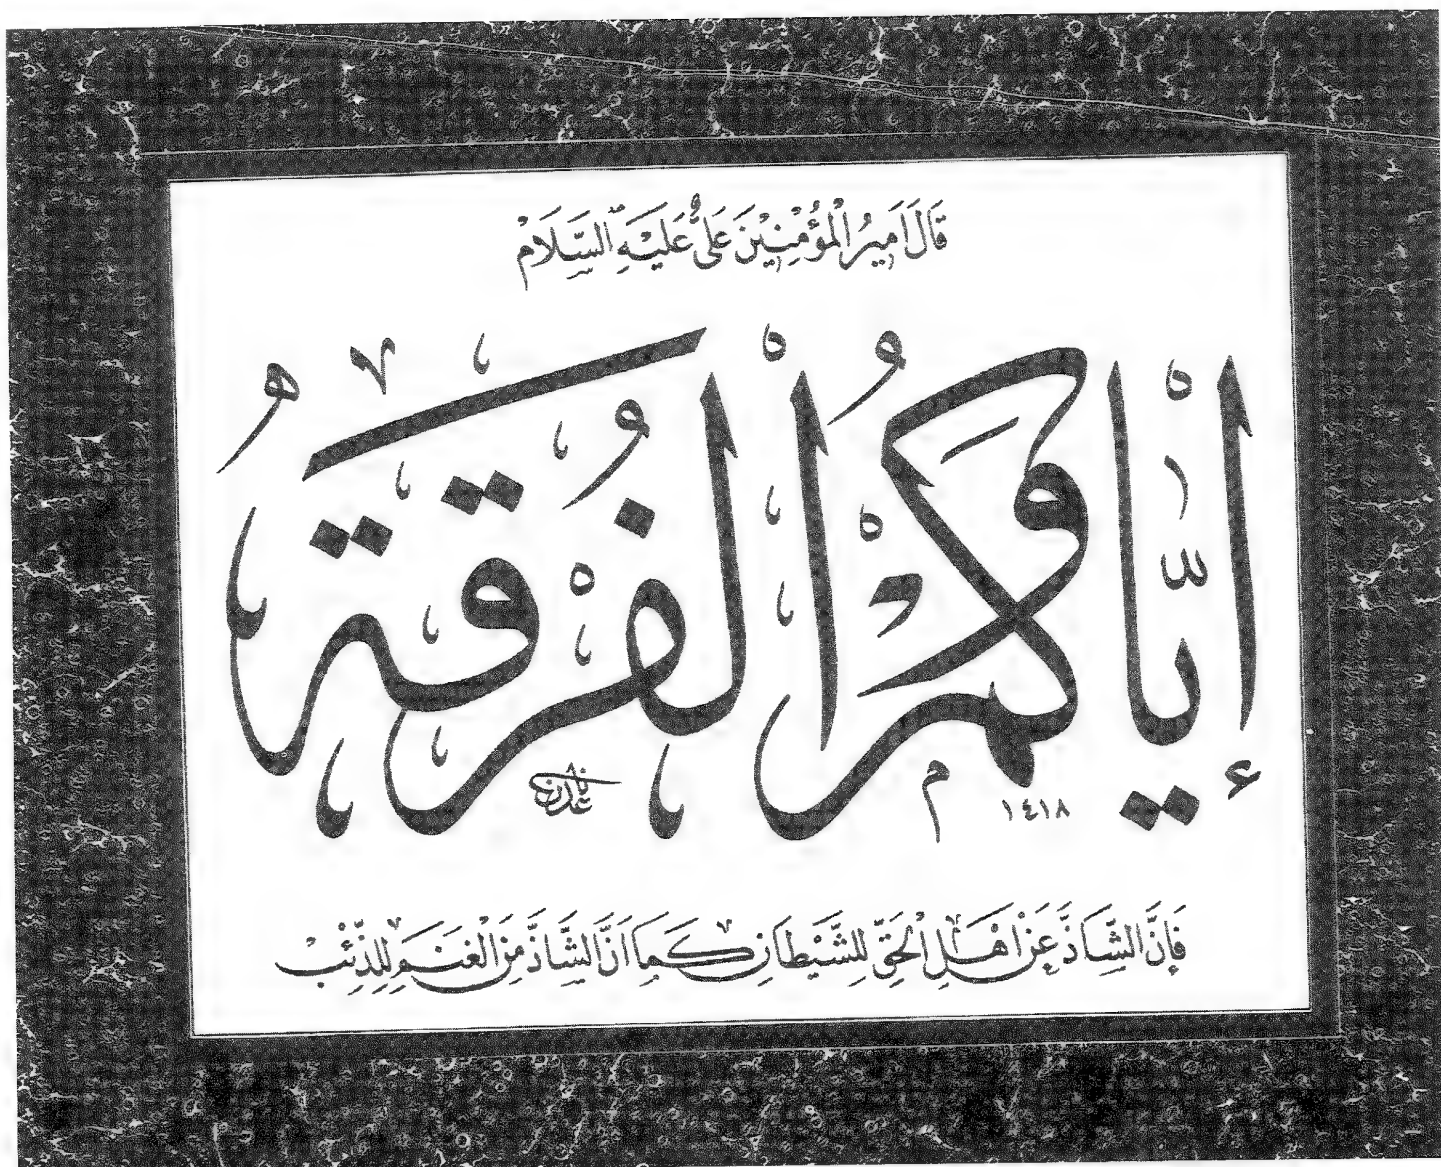 قَالَ اَمِيرُ الْمُؤْمِنِيْنَ عَلىٌّ عَلَيْهِ السَّلَامْ
إيَّاكُمْ وَالْفُرْقَةَ
١٤١٨
فَإِنَّ الشَّاذَّ عَنْ اَهْلِ الْحَقِّ لِلشَّيْطَانِ كَمَا اَنَّ الشَّاذَّ مِنَ الْغَنَمِ لِلذِّئْبْ